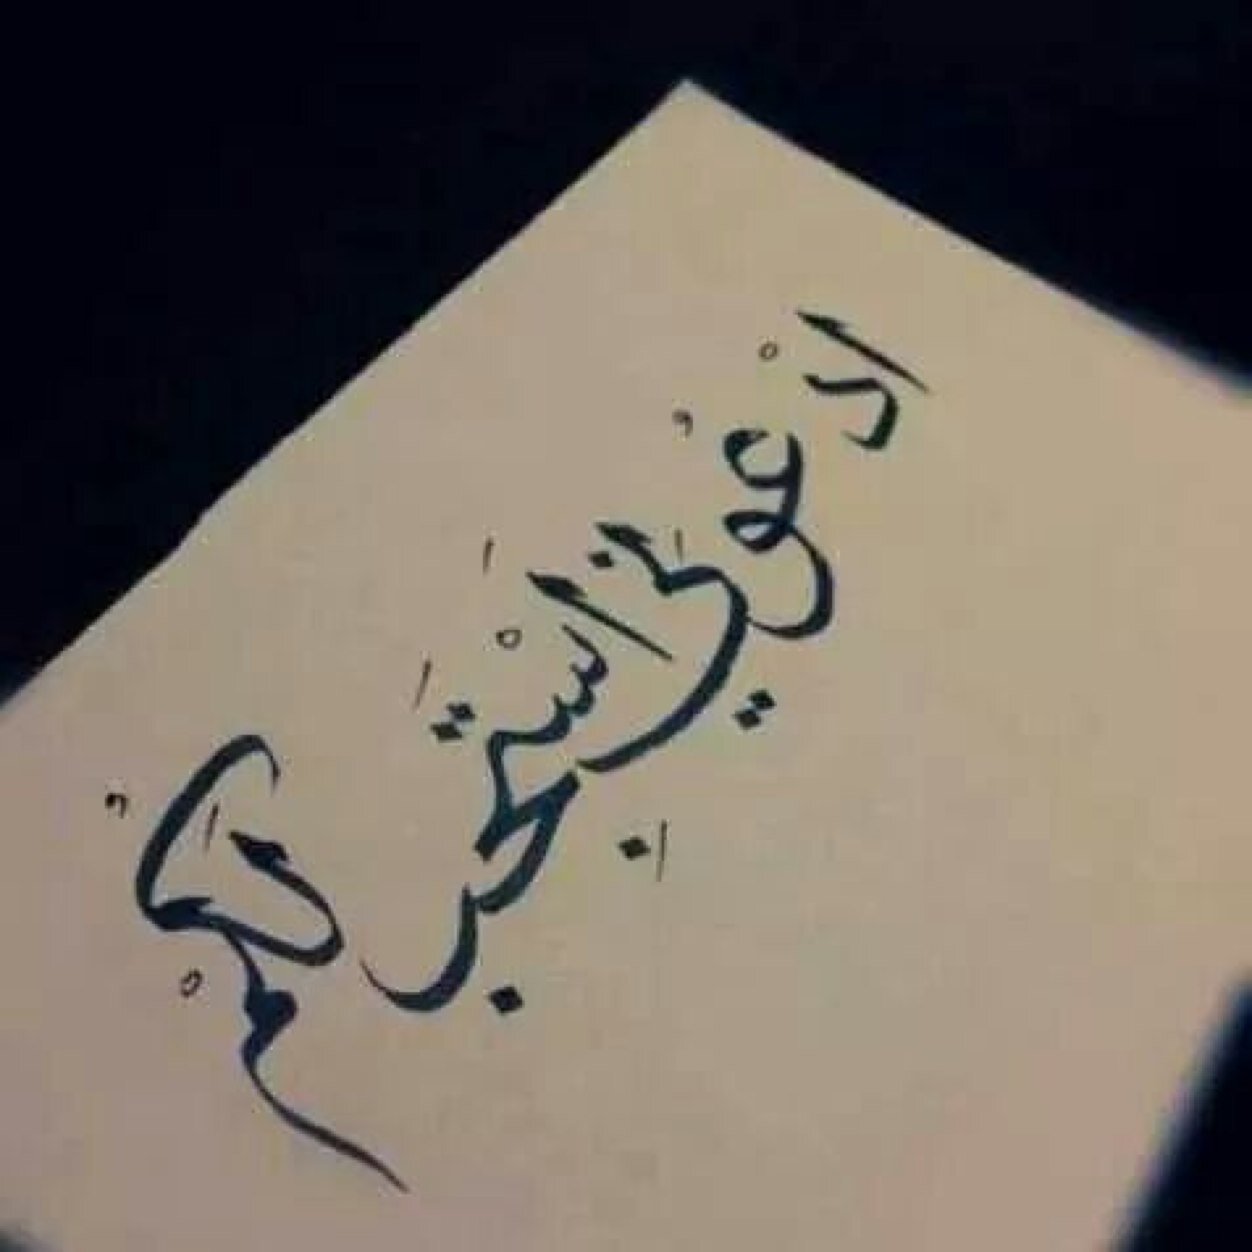 ادْعُوني أَسْتَجب لَكُمْ